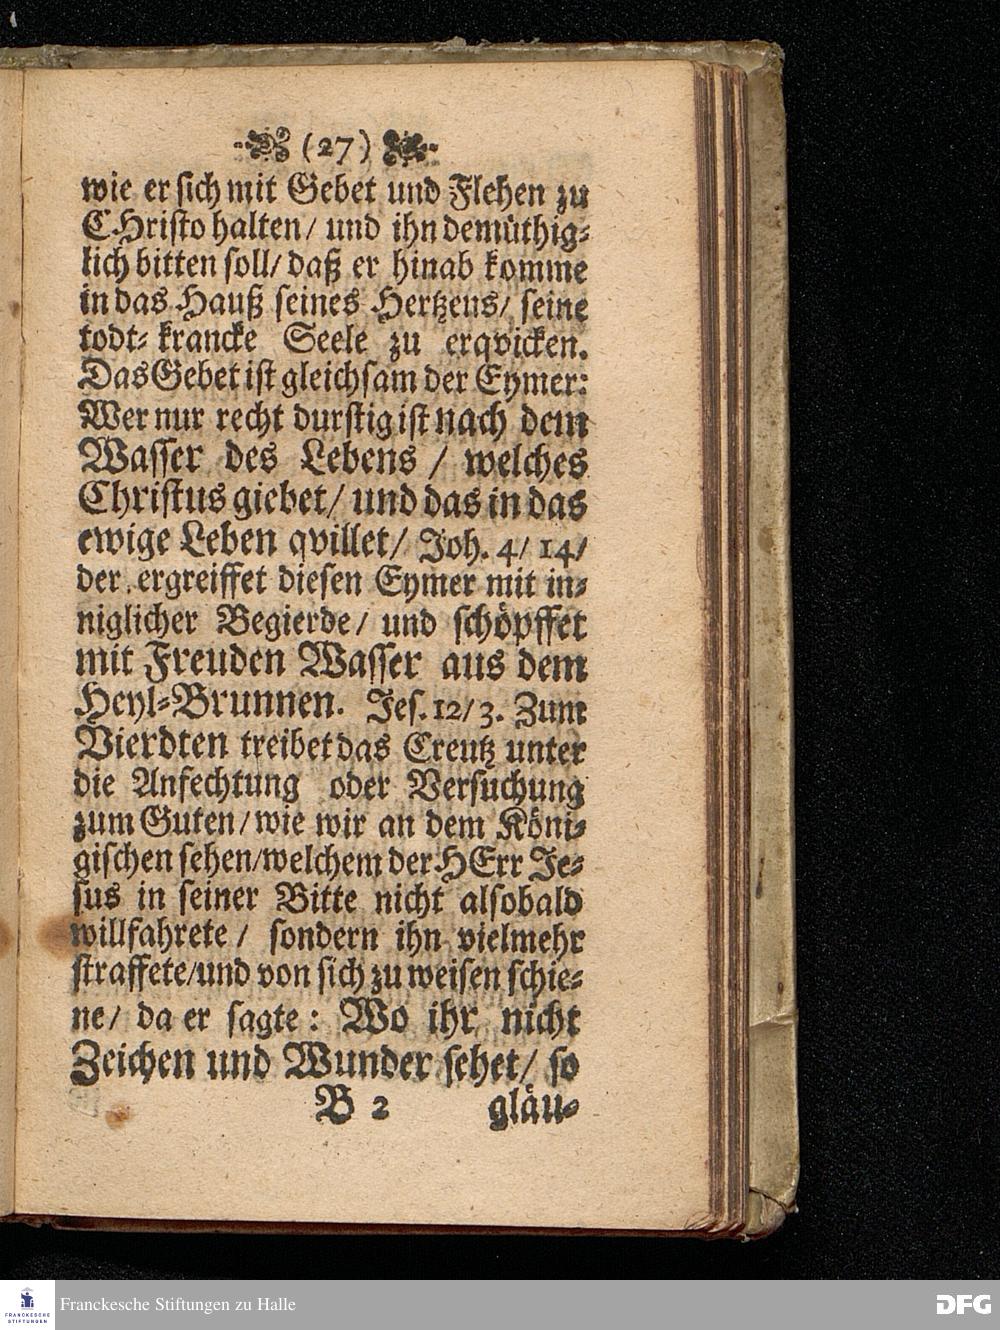 (27)
wie er sich mit Gebet und Flehen zu
CHristo halten/ und ihn demüthig-
lich bitten soll/ daß er hinab komme
in das Hauß seines Hertzens/ seine
todt-krancke Seele zu erqvicken.
Das Gebet ist gleichsam der Eymer:
Wer nur recht durstig ist nach dem
Wasser des Lebens / welches
Christus giebet/ und das in das
ewige Leben qvillet/ Joh. 4/ 14/
der ergreiffet diesen Eymer mit in-
niglicher Begierde/ und schöpffet
mit Freuden Wasser aus dem
Heyl-Brunnen. Jes. 12/ 3. Zum
Vierdten treibet das Creutz unter
die Anfechtung oder Versuchung
zum Guten/ wie wir an dem Köni-
gischen sehen/ welchem der HErr Je-
sus in seiner Bitte nicht alsobald
willfahrete / sondern ihn vielmehr
straffete/ und von sich zu weisen schie-
ne/ da er sagte: Wo ihr nicht
Zeichen und Wunder sehet/ so
B 2 gläu-
FRANCKESCHE
STIFTUNGEN
Franckesche Stiftungen zu Halle
DFG